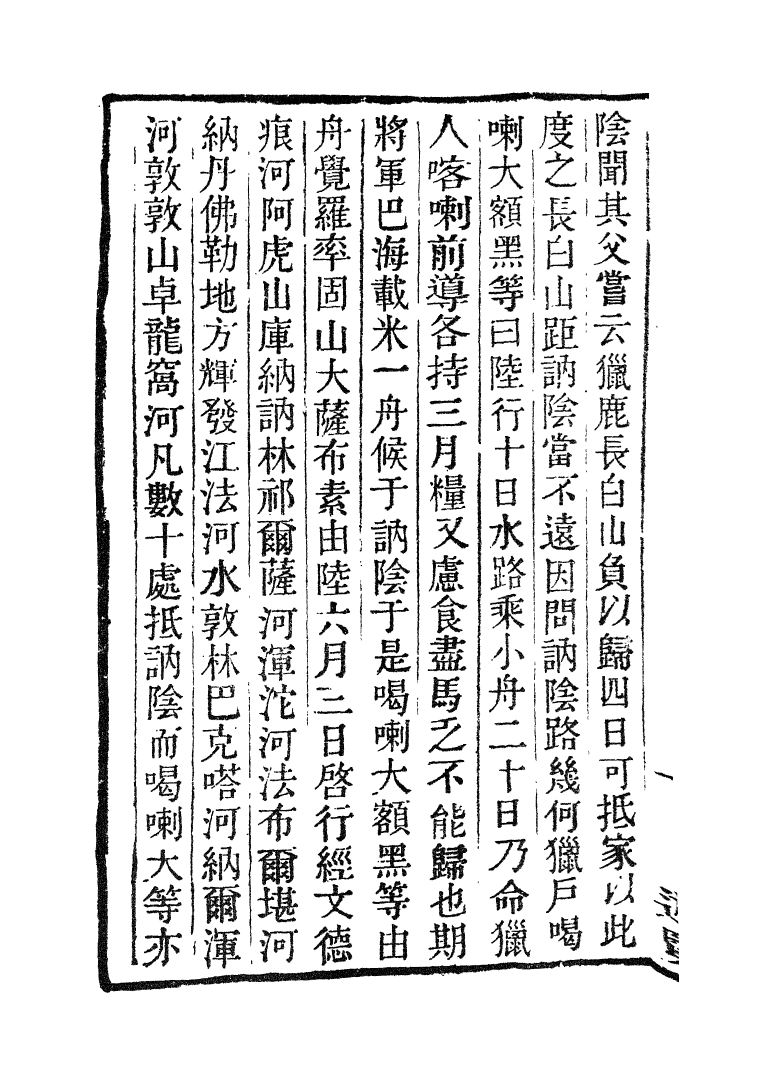 陰聞其父嘗云獵鹿長白山負以歸四日可抵家以此
度之長白山距訥陰當不遠因問訥陰路幾何獵戶喝
喇大額黑等曰陸行十日水路乘小舟二十日乃命獵
人喀喇前導各持三月糧又慮食盡馬乏不能歸也期
將軍巴海載米一舟候于訥陰于是喝喇大額黑等由
舟覺羅率固山大薩布素由陸六月二日啓行經文德
痕河阿虎山庫納訥林祁爾薩河渾沱河法布爾堪河
納丹佛勒地方輝發江法河水敦林巴克嗒河納爾渾
河敦敦山卓龍窩河凡數十處抵訥陰而喝喇大等亦